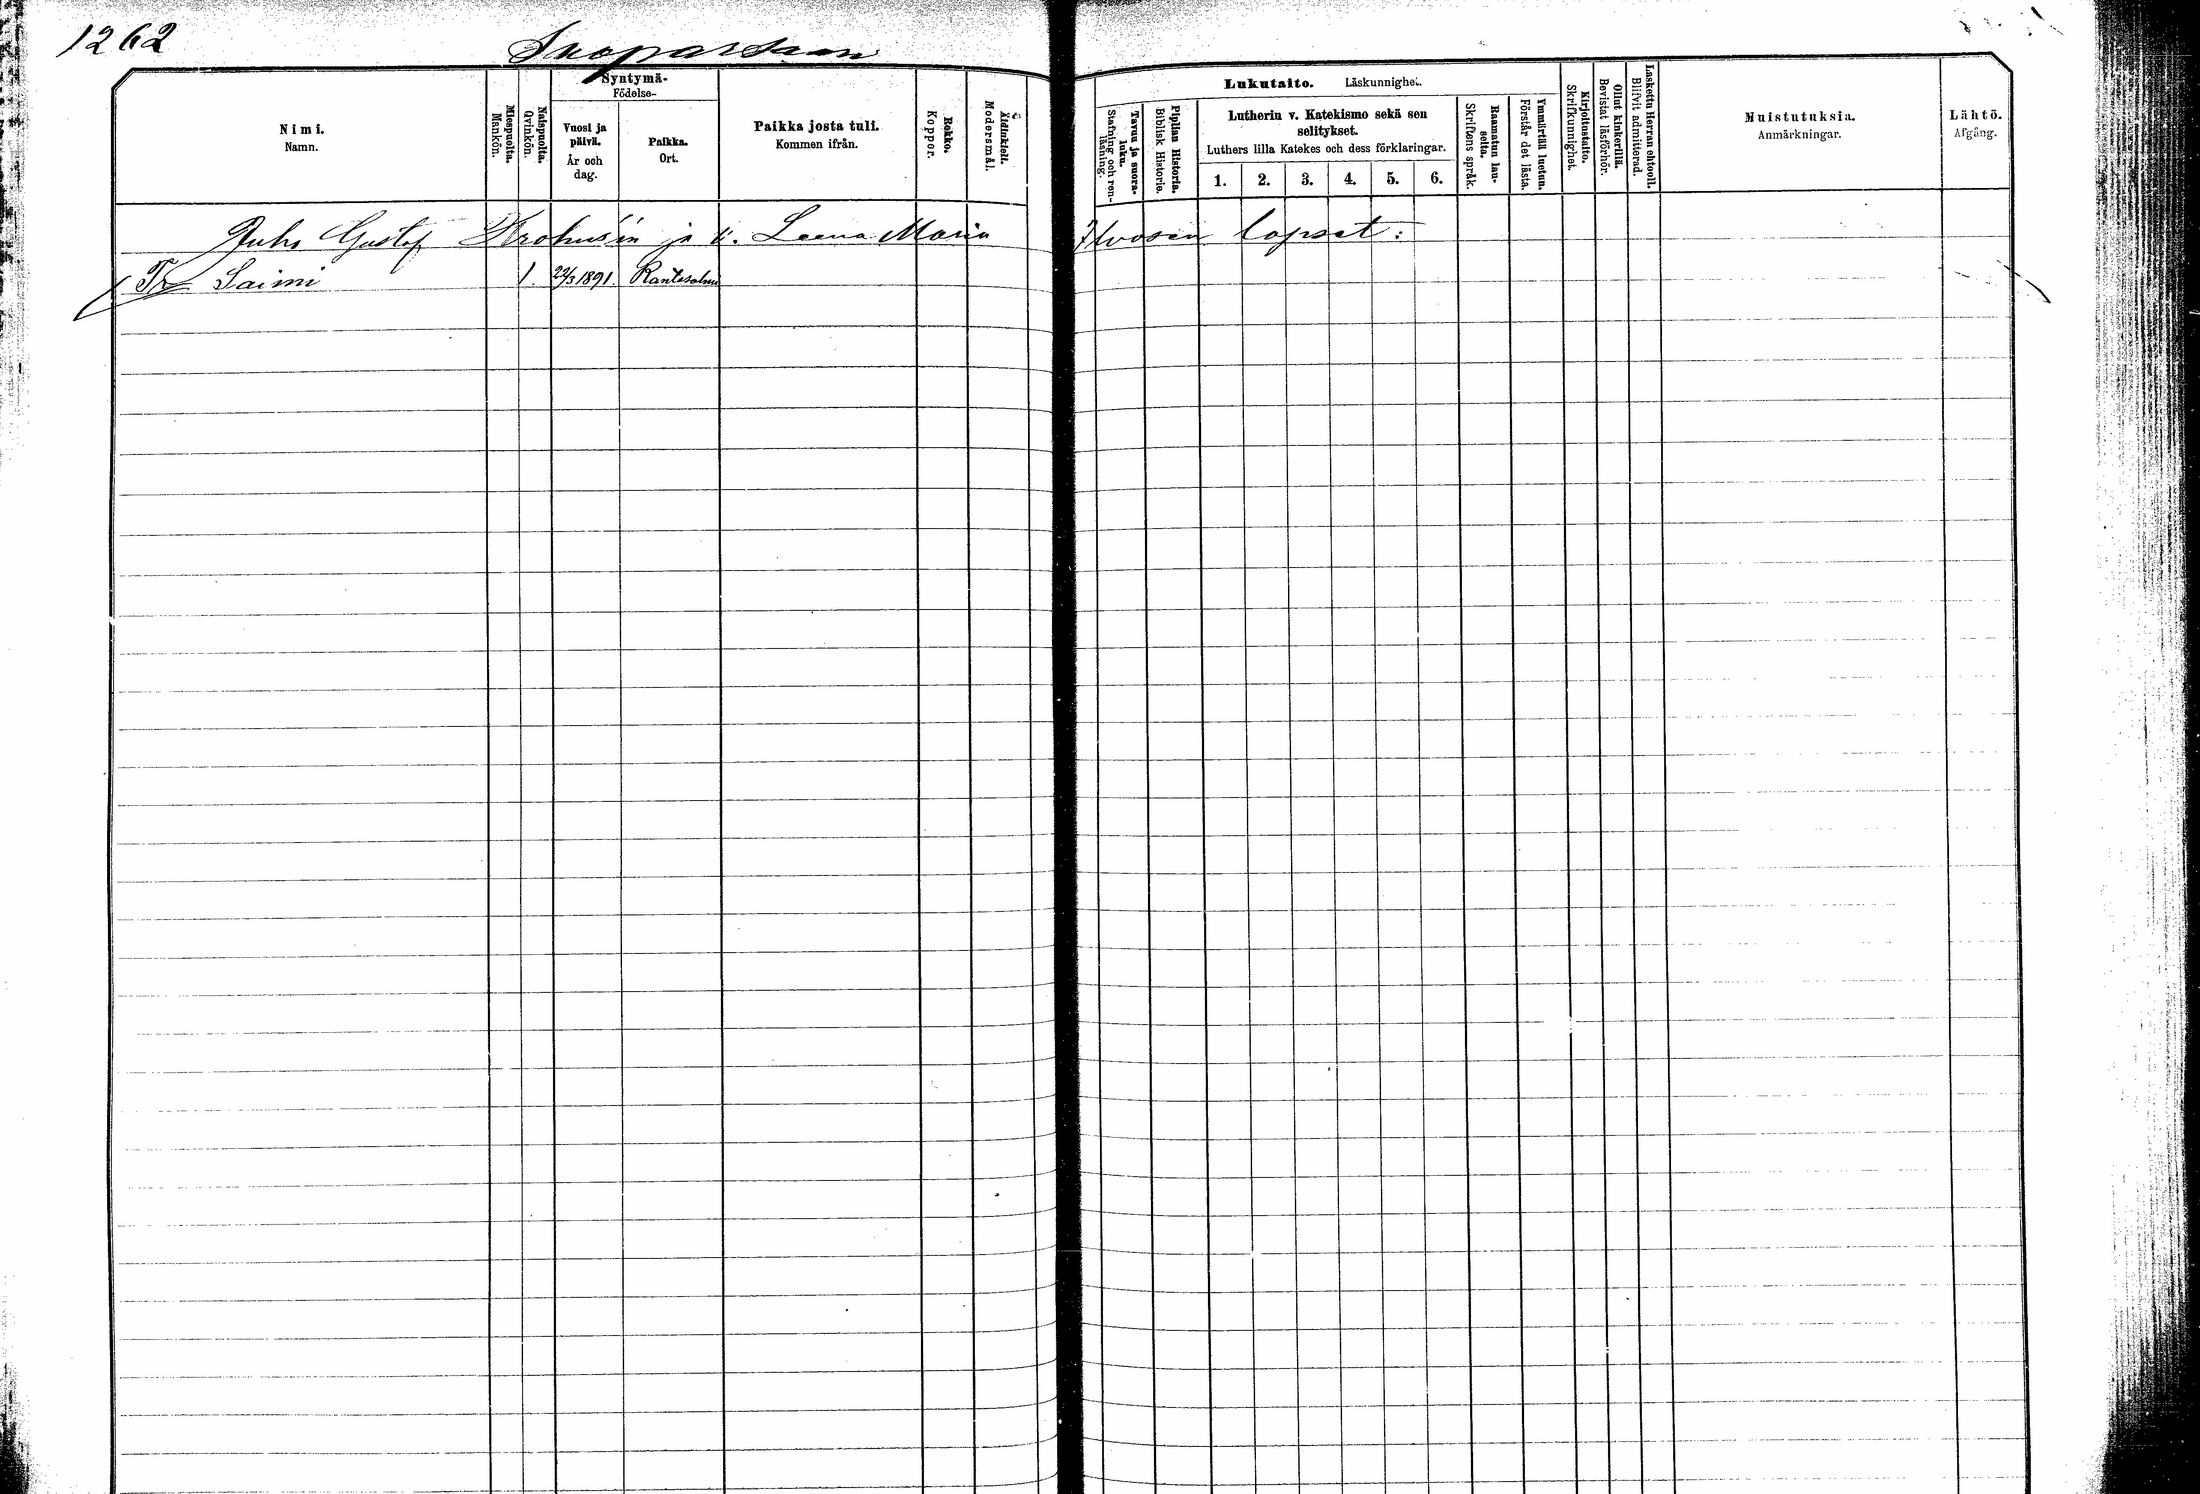 1262
Nimi.
Namn.
Miespuolta.
Mankön.
Naispuolta.
Qvinkön.
Syntymä-
Födelse-
Vuosi ja
päivä.
År och
dag.
Paikka.
Ort.
Paikka josta tuli.
Kommen ifrån.
Rokko.
Koppor.
Äidinkieli.
Modersmål.
Lukutaito. Läskunnighet.
Tavuu ja suora-
luku.
Stafning och ren-
läsning.
Piplian Historia.
Biblisk Historie.
Lutherin v. Katekismo sekä sen
selitykset.
Luthers lilla Katekes och dess förklaringar.
1. 2. 3. 4. 5. 6.
Raamatun lau-
seita.
Skriftens språk.
Ymmärtää luetun.
Förstår det lästa.
Kirjoitustaito.
Skrifkunnighet.
Ollut kinkerillä.
Bevistat läsförhör.
Laskettu Herran ehtooll.
Blifvit admitterad.
Muistutuksia.
Anmärkningar.
Lähtö.
Afgång.
Juho Gustaf ja v. Leena Maria lapset:
Tr Saimi 1. 22/3 1891. Rantasalmi